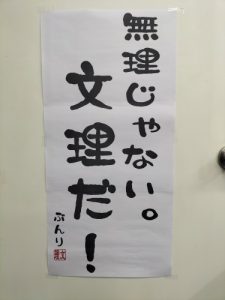 無理じゃない。
文理だ！
ぶんり
文理